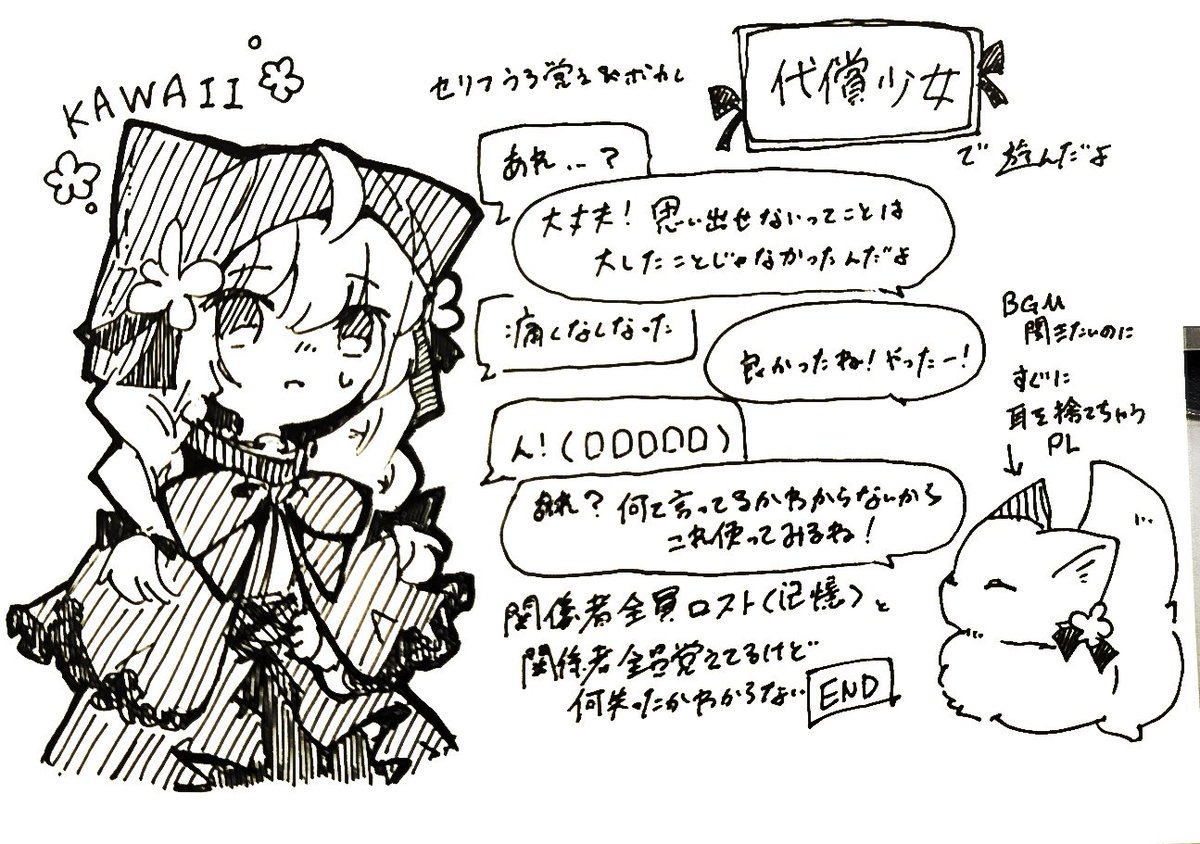 KAWAII
セリフうろ覚え&ボカし
代償少女
で遊んだよ
あれ…?
大丈夫!思い出せないってことは
大したことじゃなかったんだよ
痛くなしなった
良かったね!やったー!
ん!(□□□□□)
あれ?何て言ってるかわからないから
これ使ってみるね!
関係者全員ロスト(記憶)と
関係者全員覚えてるけど
何失ったかわからない END
BGM
聞きたいのに
すぐに
耳を捨てちゃう
PL